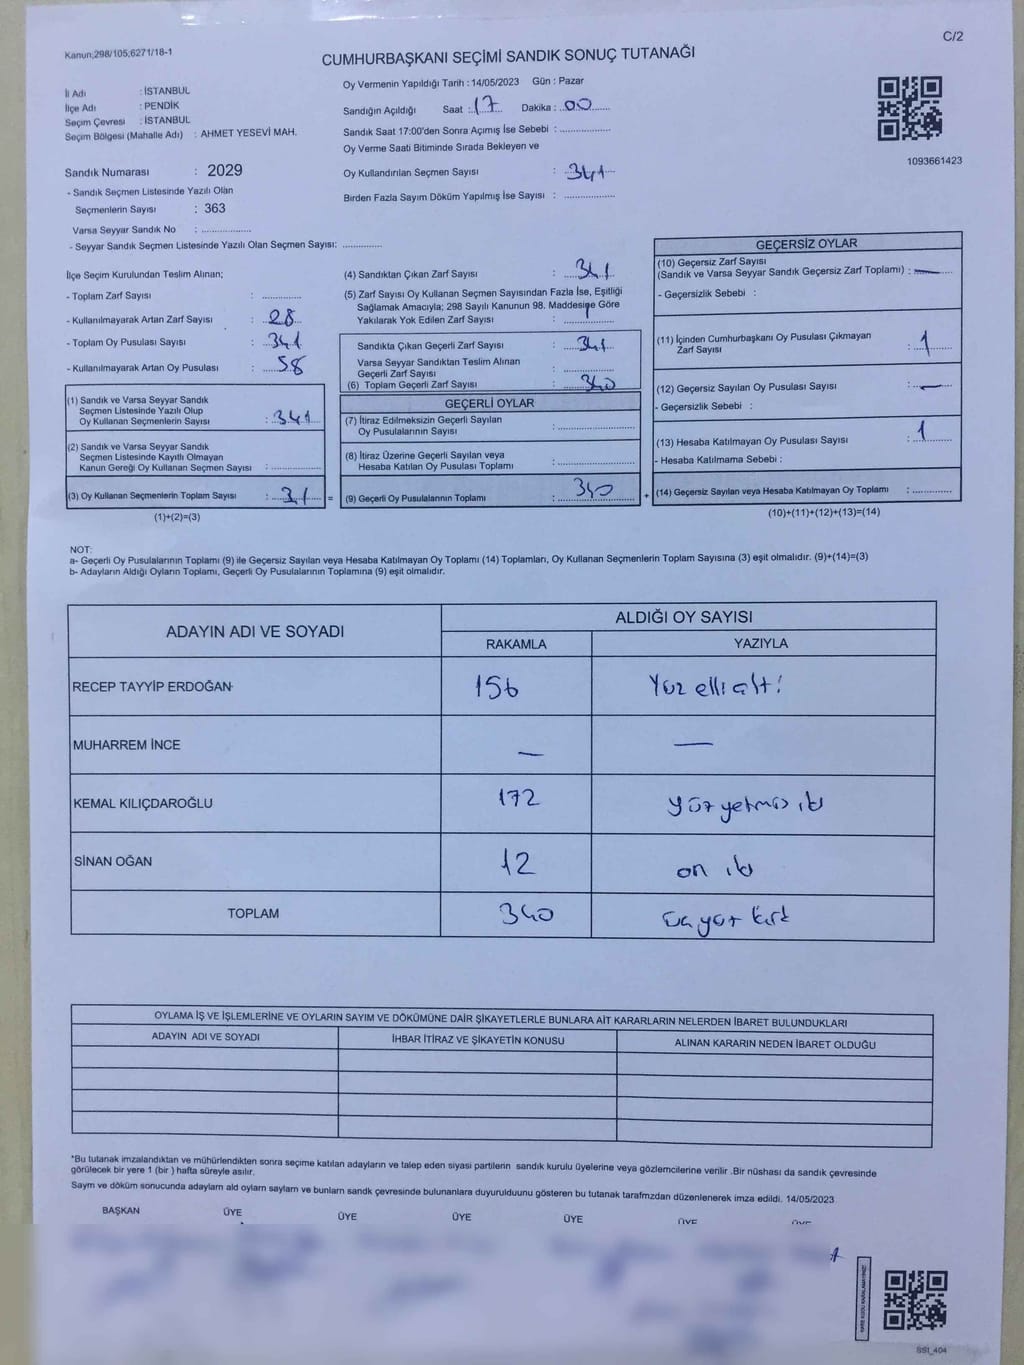 C/2
Kanun;298/105;6271/18-1
CUMHURBAŞKANI SEÇİMİ SANDIK SONUÇ TUTANAĞI
İl Adı : İSTANBUL
İlçe Adı : PENDİK
Seçim Çevresi : İSTANBUL
Seçim Bölgesi (Mahalle Adı) : AHMET YESEVİ MAH.
Sandık Numarası : 2029
- Sandık Seçmen Listesinde Yazılı Olan
Seçmenlerin Sayısı : 363
Varsa Seyyar Sandık No : ..................
- Seyyar Sandık Seçmen Listesinde Yazılı Olan Seçmen Sayısı: ..............
Oy Vermenin Yapıldığı Tarih : 14/05/2023 Gün : Pazar
Sandığın Açıldığı Saat : 17 Dakika : 00
Sandık Saat 17:00'den Sonra Açımış İse Sebebi : ..................
Oy Verme Saati Bitiminde Sırada Bekleyen ve
Oy Kullandırılan Seçmen Sayısı : 341
Birden Fazla Sayım Döküm Yapılmış İse Sayısı : ..................
1093661423
İlçe Seçim Kurulundan Teslim Alınan;
- Toplam Zarf Sayısı : ..............
- Kullanılmayarak Artan Zarf Sayısı : 28
- Toplam Oy Pusulası Sayısı : 341
- Kullanılmayarak Artan Oy Pusulası : 58
(1) Sandık ve Varsa Seyyar Sandık
Seçmen Listesinde Yazılı Olup
Oy Kullanan Seçmenlerin Sayısı : 341
(2) Sandık ve Varsa Seyyar Sandık
Seçmen Listesinde Kayıtlı Olmayan
Kanun Gereği Oy Kullanan Seçmen Sayısı : ..................
(3) Oy Kullanan Seçmenlerin Toplam Sayısı : 31 =
(1)+(2)=(3)
(4) Sandıktan Çıkan Zarf Sayısı : 341
(5) Zarf Sayısı Oy Kullanan Seçmen Sayısından Fazla İse, Eşitliği
Sağlamak Amacıyla; 298 Sayılı Kanunun 98. Maddesine Göre
Yakılarak Yok Edilen Zarf Sayısı : ..................
Sandıkta Çıkan Geçerli Zarf Sayısı : 341
Varsa Seyyar Sandıktan Teslim Alınan
Geçerli Zarf Sayısı : ..................
(6) Toplam Geçerli Zarf Sayısı : 340
GEÇERLİ OYLAR
(7) İtiraz Edilmeksizin Geçerli Sayılan
Oy Pusulalarının Sayısı : ..................
(8) İtiraz Üzerine Geçerli Sayılan veya
Hesaba Katılan Oy Pusulası Toplamı : ..................
(9) Geçerli Oy Pusulalarının Toplamı : 340 +
GEÇERSİZ OYLAR
(10) Geçersiz Zarf Sayısı
(Sandık ve Varsa Seyyar Sandık Geçersiz Zarf Toplamı) : —
- Geçersizlik Sebebi :
(11) İçinden Cumhurbaşkanı Oy Pusulası Çıkmayan
Zarf Sayısı : 1
(12) Geçersiz Sayılan Oy Pusulası Sayısı : —
- Geçersizlik Sebebi :
(13) Hesaba Katılmayan Oy Pusulası Sayısı : 1
- Hesaba Katılmama Sebebi :
(14) Geçersiz Sayılan veya Hesaba Katılmayan Oy Toplamı : ..............
(10)+(11)+(12)+(13)=(14)
NOT:
a- Geçerli Oy Pusulalarının Toplamı (9) ile Geçersiz Sayılan veya Hesaba Katılmayan Oy Toplamı (14) Toplamları, Oy Kullanan Seçmenlerin Toplam Sayısına (3) eşit olmalıdır. (9)+(14)=(3)
b- Adayların Aldığı Oyların Toplamı, Geçerli Oy Pusulalarının Toplamına (9) eşit olmalıdır.
ADAYIN ADI VE SOYADI ALDIĞI OY SAYISI
RAKAMLA YAZIYLA
RECEP TAYYİP ERDOĞAN 156 Yüz elli altı
MUHARREM İNCE — —
KEMAL KILIÇDAROĞLU 172 yüz yetmiş iki
SİNAN OĞAN 12 on iki
TOPLAM 340 üç yüz kırk
OYLAMA İŞ VE İŞLEMLERİNE VE OYLARIN SAYIM VE DÖKÜMÜNE DAİR ŞİKAYETLERLE BUNLARA AİT KARARLARIN NELERDEN İBARET BULUNDUKLARI
ADAYIN ADI VE SOYADI İHBAR İTİRAZ VE ŞİKAYETİN KONUSU ALINAN KARARIN NEDEN İBARET OLDUĞU
*Bu tutanak imzalandıktan ve mühürlendikten sonra seçime katılan adayların ve talep eden siyasi partilerin sandık kurulu üyelerine veya gözlemcilerine verilir .Bir nüshası da sandık çevresinde
görülecek bir yere 1 (bir ) hafta süreyle asılır.
Saym ve döküm sonucunda adaylarn ald oylarn saylarn ve bunlarn sandk çevresinde bulunanlara duyurulduunu gösteren bu tutanak tarafmzdan düzenlenerek imza edildi. 14/05/2023
BAŞKAN ÜYE ÜYE ÜYE ÜYE ÜYE ÜYE
SSt_404